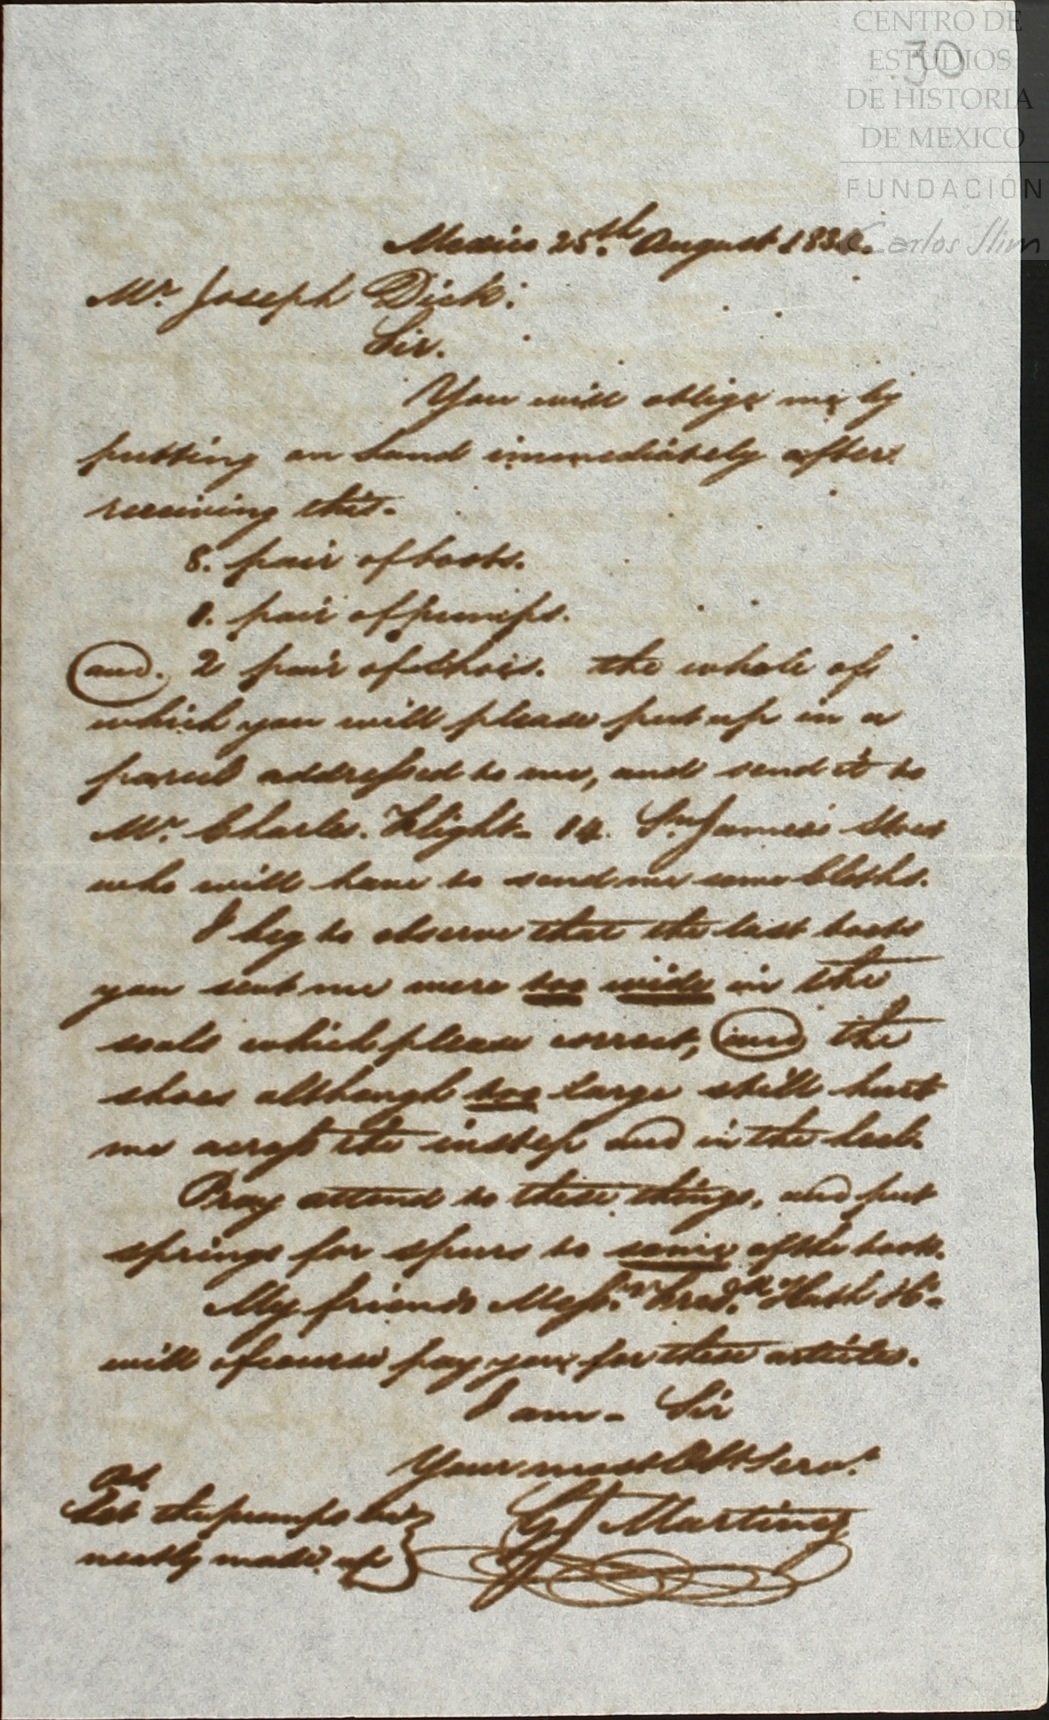 CENTRO DE
ESTUDIOS
DE HISTORIA
DE MEXICO
FUNDACIÓN
Carlos Slim
30
Mexico 25th. August
Mr. Joseph Dick:
Sir.
You will oblige me by
putting on hand immediately after
receiving this.
8. pair of boots.
1. pair of pumps.
and. 2 pair of shoes. the whole of
which you will please put up in a
parcel addressed to me, and send it to
Mr. Charles. Flight. 14. St James's Street
who will have to send me some Cloths.
I beg to observe that the last boots
you sent me were too wide in the
souls which please correct, and the
shoes although too large still hurt
me across the instep and in the heel.
Pray attend to these things, and put
springs for spurs to some of the boots.
My friends Messrs. Fredk. Huth &Co.
will of course pay you for these articles.
I am. Sir
Your most Obt Servt.
Martinez
Ps.
Let the pumps be
neatly made up